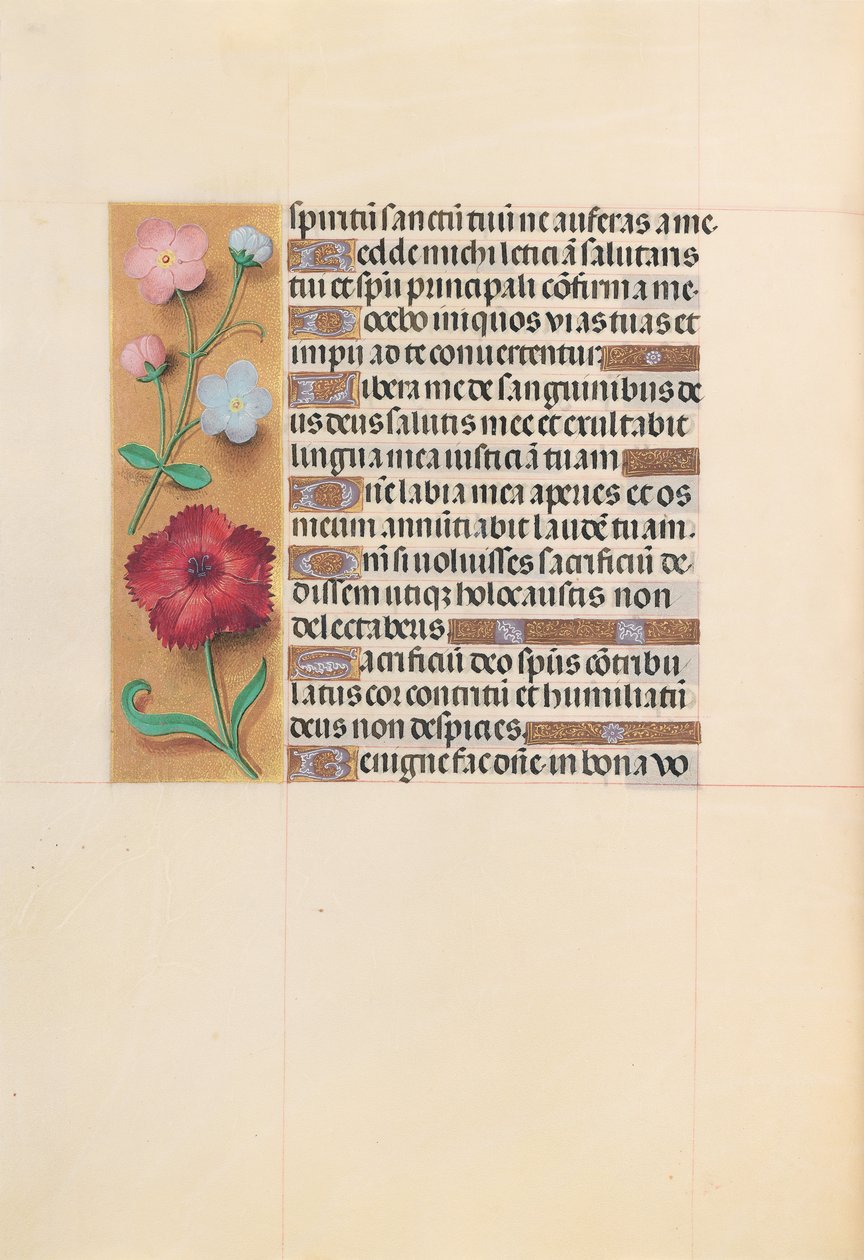 spiritū sanctū tuū ne auferas a me.
Redde michi leticiā salutaris
tui et spū principali cōfirma me.
Docebo iniquos vias tuas et
impii ad te conuertentur.
Libera me de sanguinibus de
us deus salutis mee et exultabit
lingua mea iusticiā tuam
Dn̄e labia mea aperies et os
meum annūtiabit laudē tuam.
Qm̄ si uoluisses sacrificiū de
dissem utiqꝫ holocaustis non
delectaberis.
Sacrificiū deo spūs cōtribu
latus cor contritū et humiliatū
deus non despicies.
Benigne fac dn̄e in bona vo